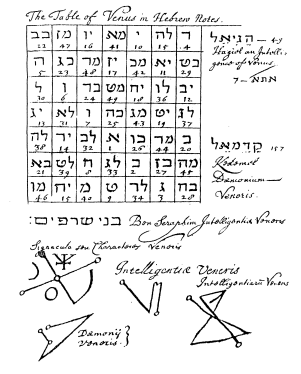 The Table of Venus in Hebrew Notes.
ד לה י מא יו מז כב
22 47 16 41 10 35 4
הגיאל — 49
Hagiel an Intelli
gence of Venus
כט יא מב יז מח כג ה
5 23 48 17 42 11 29
אהא — 7
יב לו יח מט כד ו ל
30 6 24 49 18 36 12
לז יט מג כה ז לא יג
13 31 7 25 43 19 37
כ מד כו א לב יד לח
38 14 32 1 26 44 20
קדמאל 157
Kedemel
Dæmonium
Veneris.
מה כז ב לג ח לט כא
21 39 8 33 2 27 45
כח ג לד ט מ יה מו
46 15 40 9 34 3 28
בני שרפים: Bon Seraphim Intelligentia Veneris
Signacula seu Characteres Veneris
Intelligentiæ Veneris
Intelligentiam Veneris
Dæmonij
Veneris.